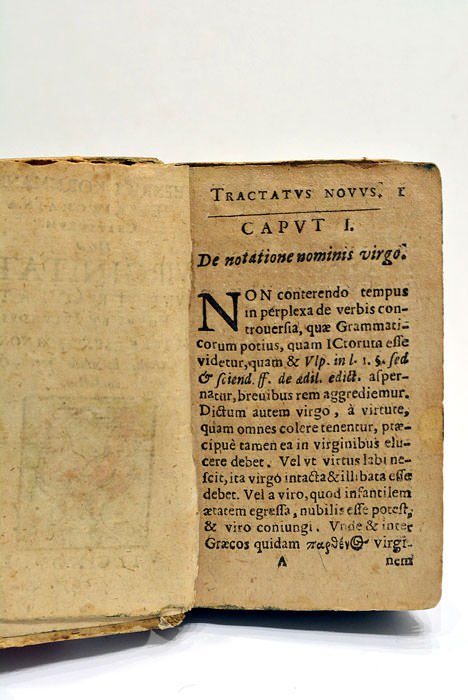 TRACTATVS NOVVS. 1
CAPVT I.
De notatione nominis virgo.
NON conterendo tempus
in perplexa de verbis con-
trouersia, quæ Grammati-
corum potius, quam ICtorum esse
videtur, quam & Vlp. in l. 1. §. sed
& sciend. ff. de ædil. edict. asper-
natur, breuibus rem aggrediemur.
Dictum autem virgo, à virtute,
quam omnes colere tenentur, præ-
cipuè tamen ea in virginibus elu-
cere debet. Vel vt virtus labi ne-
scit, ita virgo intacta & illibata esse
debet. Vel a viro, quod infantilem
ætatem egressa, nubilis esse potest,
& viro coniungi. Vnde & inter
Græcos quidam παρθέν virgi-
A nem